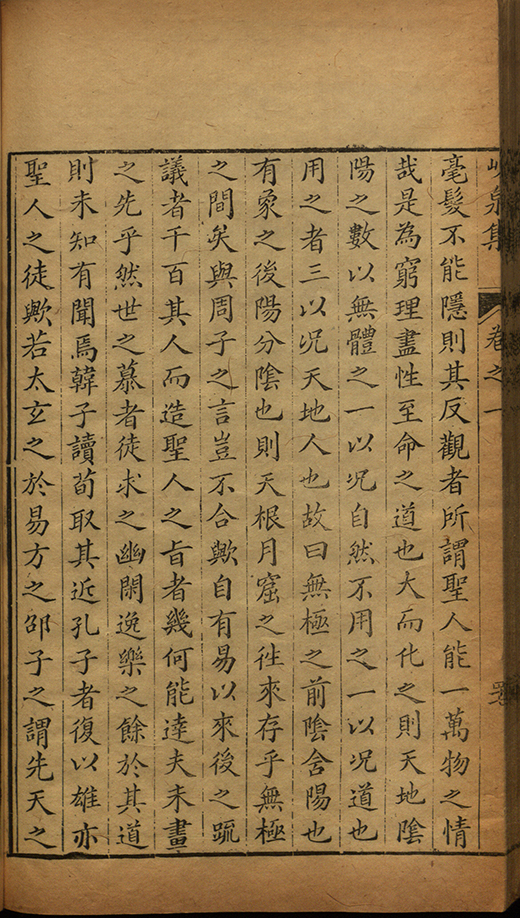 峴泉集
卷之一
毫髮不能隱則其反觀者所謂聖人能一萬物之情
哉是為窮理盡性至命之道也大而化之則天地陰
陽之數以無體之一以况自然不用之一以况道也
用之者三以况天地人也故曰無極之前陰含陽也
有象之後陽分陰也則天根月窟之徃來存乎無極
之間矣與周子之言豈不合歟自有易以來後之䟽
議者千百其人而造聖人之旨者幾何能達夫未畫
之先乎然世之慕者徒求之幽閑逸樂之餘於其道
則未知有聞焉韓子讀荀取其近孔子者復以雄亦
聖人之徒歟若太玄之於易方之邵子之謂先天之